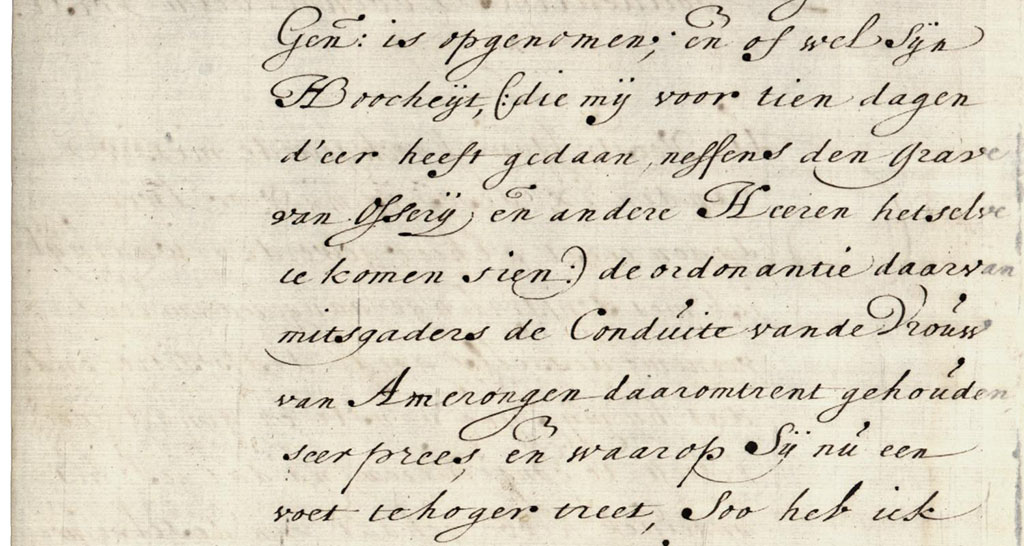 Gen: is opgenomen; en of wel Sijn
Hoocheijt, (: die mij voor tien dagen
d'eer heeft gedaan, neffens den Grave
van Ossery, en andere Heeren hetselve
te komen sien:) de ordonantie daarvan
mitsgaders de Conduite vande Vrouw
van Amerongen daaromtrent gehouden
seer prees, en waarop Sij nu een
voet te hoger treet, Soo heb ick